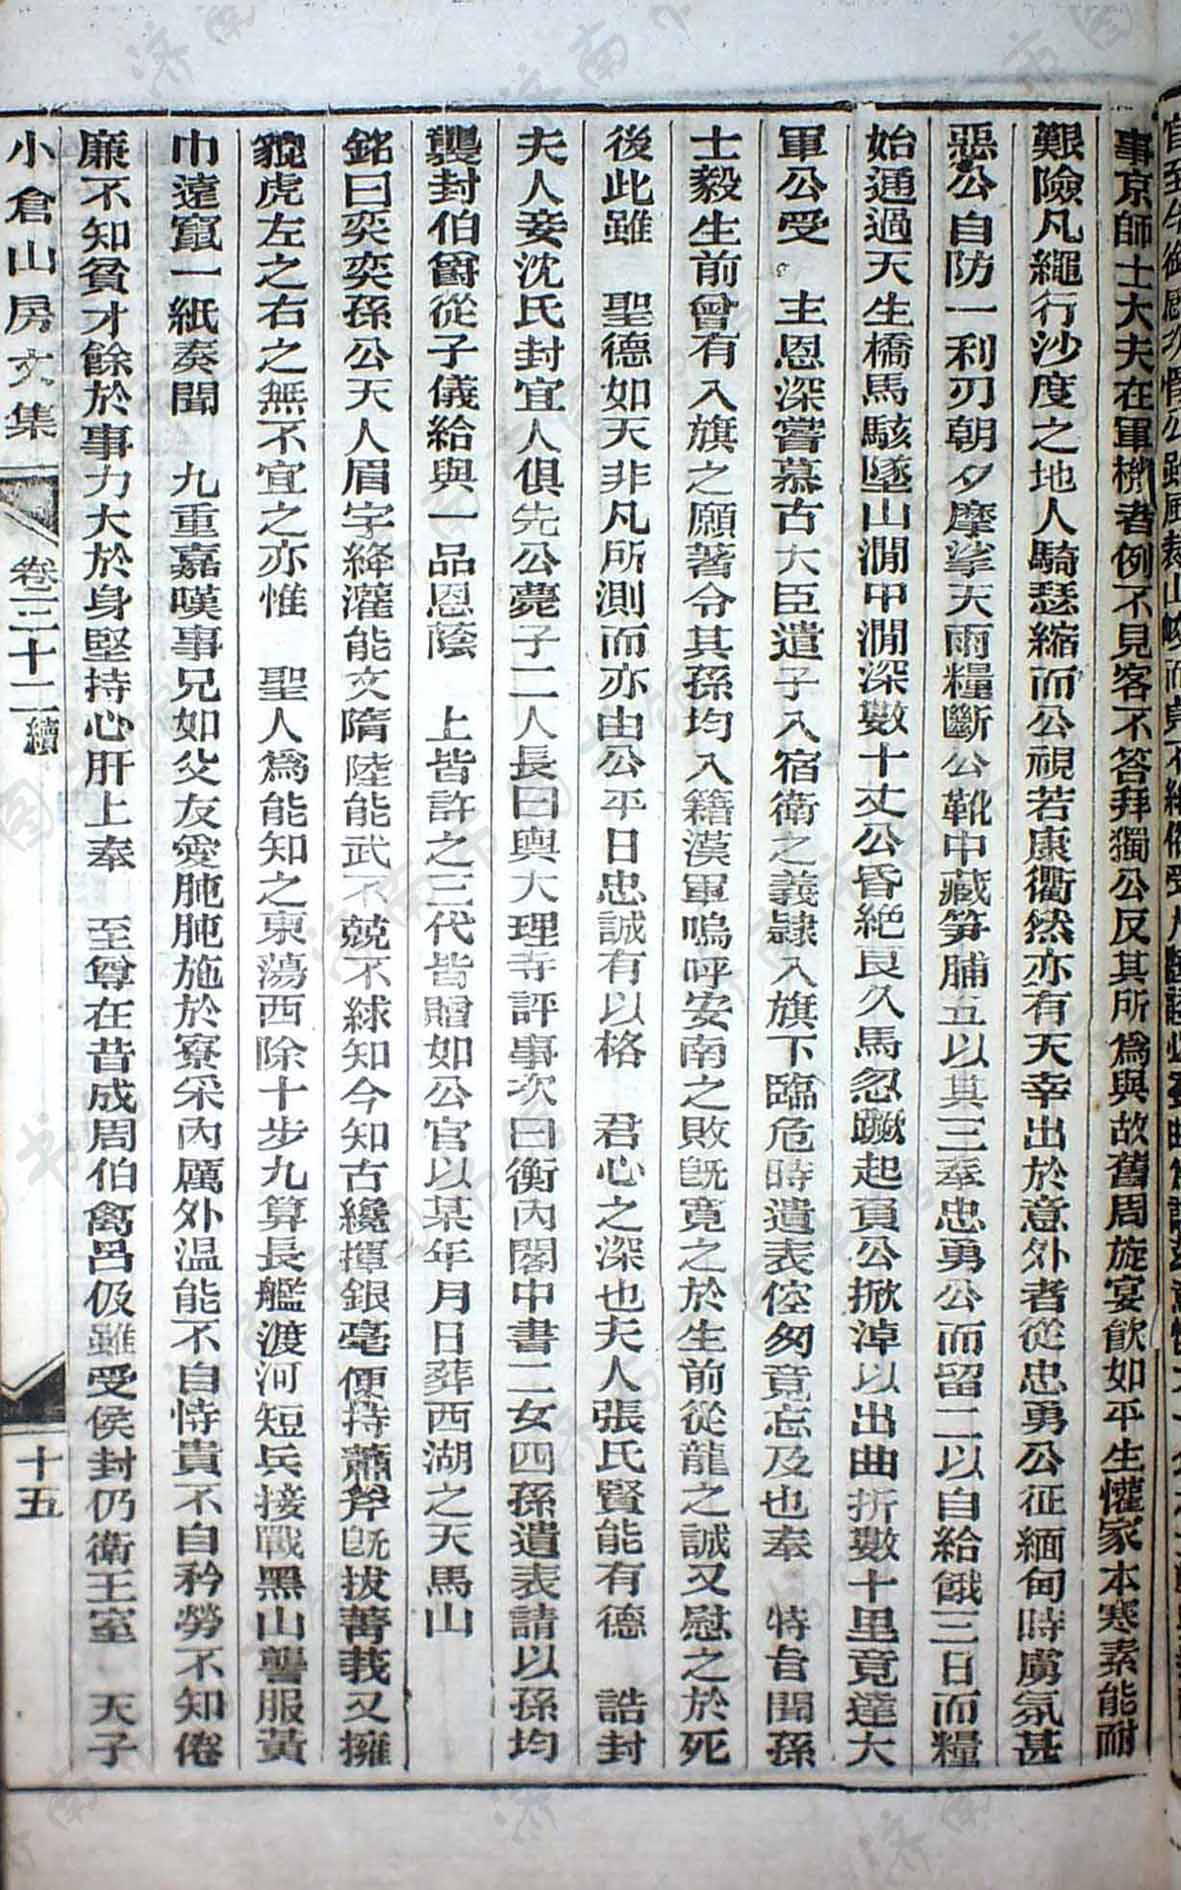 事京師士大夫在軍機者例不見客不答拜獨公反其所為與故舊周旋宴飲如平生懽家本寒素能耐
艱險凡繩行沙度之地人騎瑟縮而公視若康衢然亦有天幸出於意外者從忠勇公征緬甸時虜氛甚
惡公自防一利刃朝夕摩挲天雨糧斷公靴中藏笋脯五以其三奉忠勇公而留二以自給餓三日而糧
始通過天生橋馬駭墜山澗中澗深數十丈公昏絕良久馬忽蹶起負公掀淖以出曲折數十里竟達大
軍公受　主恩深嘗慕古大臣遣子入宿衛之義隸入旗下臨危時遺表倥匆竟忘及也奉　特旨聞孫
士毅生前曾有入旗之願著令其孫均入籍漢軍嗚呼安南之敗旣寬之於生前從龍之誠又慰之於死
後此雖　聖德如天非凡所測而亦由公平日忠誠有以格　君心之深也夫人張氏賢能有德　誥封
夫人妾沈氏封宜人俱先公薨子二人長曰輿大理寺評事次曰衡內閣中書二女四孫遺表請以孫均
襲封伯爵從子儀給與一品恩蔭　上皆許之三代皆贈如公官以某年月日葬西湖之天馬山
銘曰奕奕孫公天人眉字絳灌能文隋陸能武不競不絿知今知古纔揮銀毫便持蕭斧旣拔菁莪又擁
貔虎左之右之無不宜之亦惟　聖人為能知之東蕩西除十步九算長艦渡河短兵接戰黑山讋服黃
巾遠竄一紙奏聞　九重嘉嘆事兄如父友愛肫肫施於寮采內厲外溫能不自恃貴不自矜勞不知倦
廉不知貧才餘於事力大於身堅持心肝上奉　至尊在昔成周伯禽呂伋雖受侯封仍衛王室　天子
小倉山房文集　卷三十二續　十五